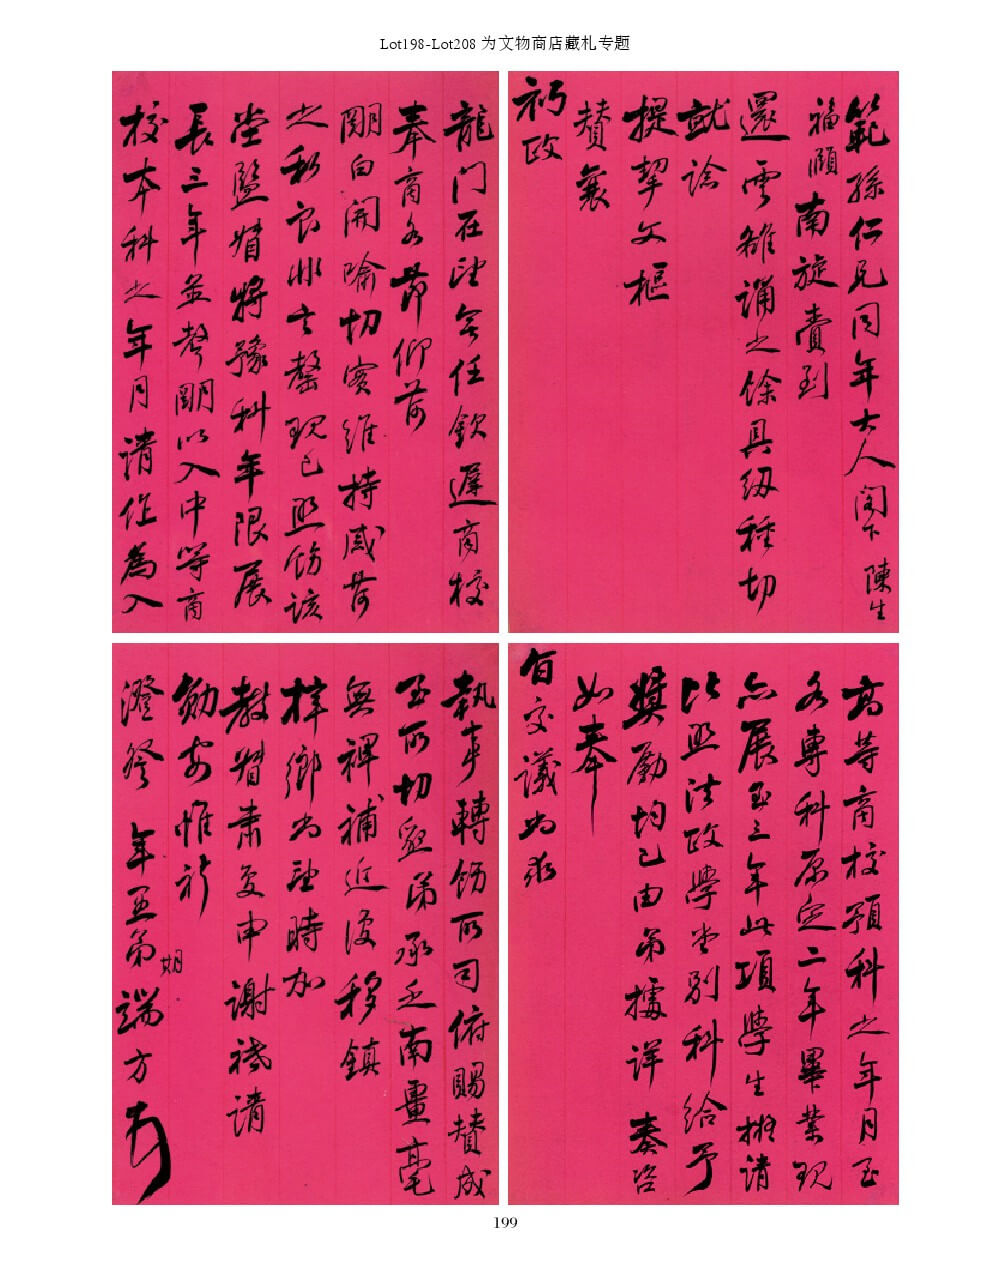 Lot198-Lot208 为文物商店藏札专题
範孫仁兄同年大人閣下陳生
福頤南旋賫到
還雲雒誦之餘具紉種切
就諗
提挈文樞
賛襄
礽政
龍門在望會任欽遲商校
奉商各節仰荷
闓白開喻切實維持感荷
之私良非言罄現已照飭該
堂監督將豫科年限展
長三年並聲闓以入中等商
校本科之年月請作為入
高等商校預科之年月至
各專科原定二年畢業現
亦展至三年此項學生擬請
比照法政學堂別科給予
奬勵均已由弟據詳奏咨
如奉
旨交議尚求
執事轉飭所司俯賜賛成
至所切盼弟承乏南畺毫
無裨補近復移鎮
梓鄉尚望時加
教督肅复申謝祗請
勛安惟祈
澄詧 年並弟期端方
199